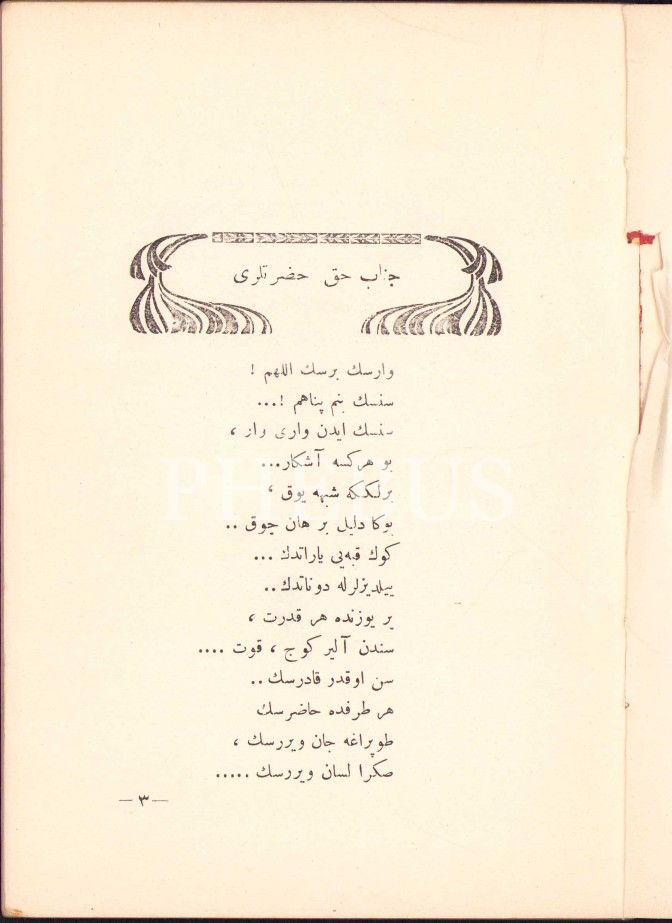 جناب حق حضرتلری
وارسك برسك اللهم !
سنسك بنم پناهم !...
سنسك ایدن واری وار ،
بو هركسه آشكار...
برلككه شبهه یوق ،
بوكا دلیل برهان چوق ..
كوك قبه‌یی یاراتدك ...
ییلدیزلرله دوناتدك..
یر یوزنده هر قدرت ،
سندن آلیر كوج ، قوت ....
سن اوقدر قادرسك..
هر طرفده حاضرسك
طوپراغه جان ویررسك ،
صكرا لسان ویررسك .....
— ٣ —
PHEBUS